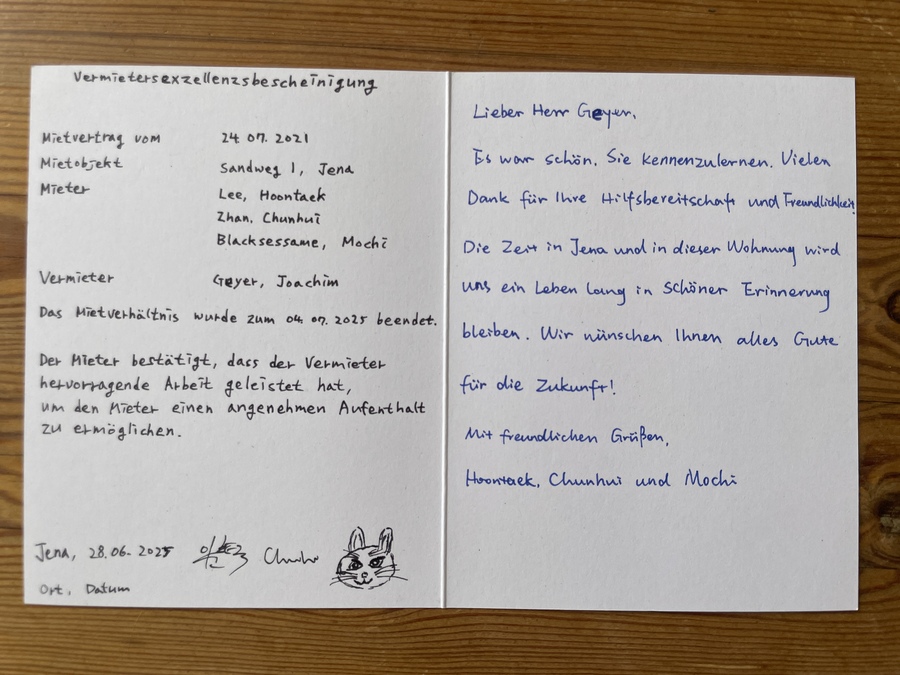 Vermietersexzellenzsbescheinigung
Mietvertrag vom 24 07. 2021
Mietobjekt Sandweg 1, Jena
Mieter Lee, Hoontaek
Zhan, Chunhui
Blacksessame, Mochi
Vermieter Geyer, Joachim
Das Mietverhältnis wurde zum 04 07. 2025 beendet.
Der Mieter bestätigt, dass der Vermieter
hervorragende Arbeit geleistet hat,
um den Mieter einen angenehmen Aufenthalt
zu ermöglichen.
Jena, 28.06-2025
Ort, Datum
Lieber Herr Geyer,
Es war schön, Sie kennenzulernen. Vielen
Dank für Ihre Hilfsbereitschaft und Freundlichkeit!
Die Zeit in Jena und in dieser Wohnung wird
uns ein Leben lang in schöner Erinnerung
bleiben. Wir wünschen Ihnen alles Gute
für die Zukunft!
Mit freundlichen Grüßen,
Hoontaek, Chunhui und Mochi